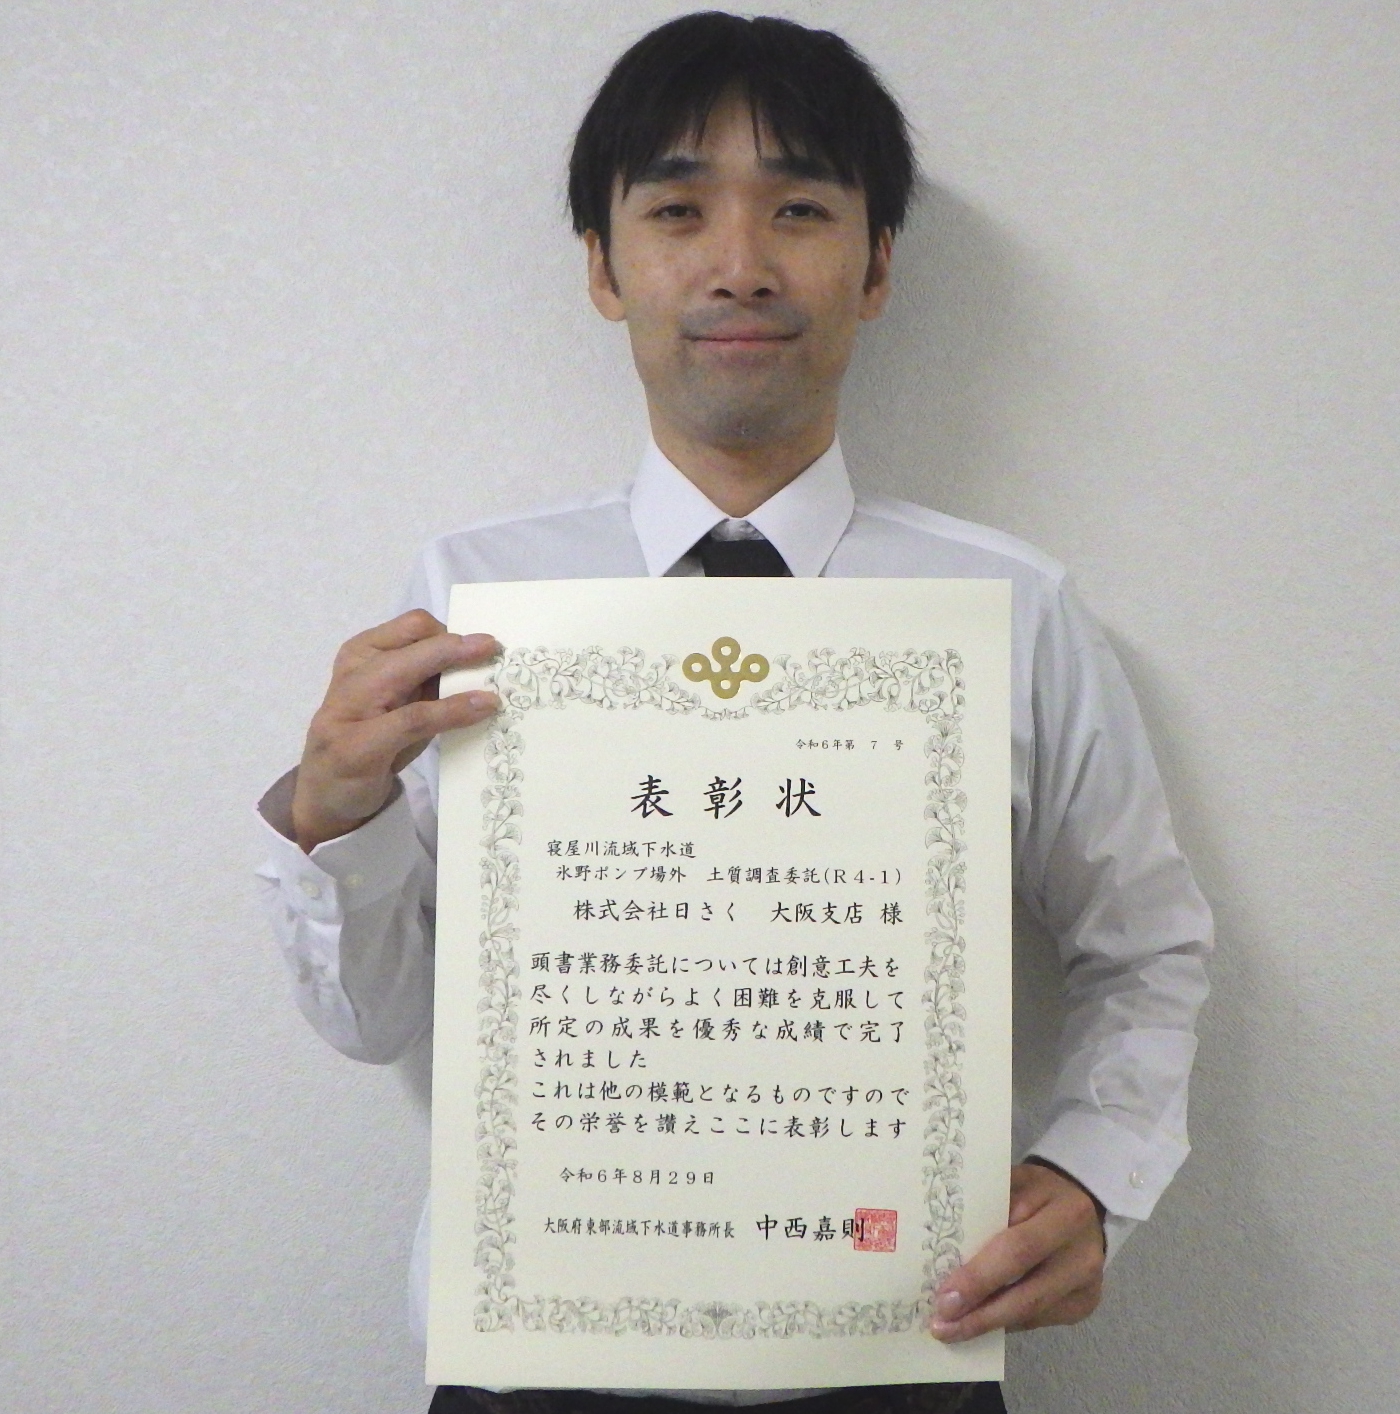 令和6年第 7 号
表彰状
寝屋川流域下水道
氷野ポンプ場外 土質調査委託(R4-1)
株式会社日さく 大阪支店 様
頭書業務委託については創意工夫を
尽くしながらよく困難を克服して
所定の成果を優秀な成績で完了
されました
これは他の模範となるものですので
その栄誉を讃えここに表彰します
令和6年8月29日
大阪府東部流域下水道事務所長 中西嘉則